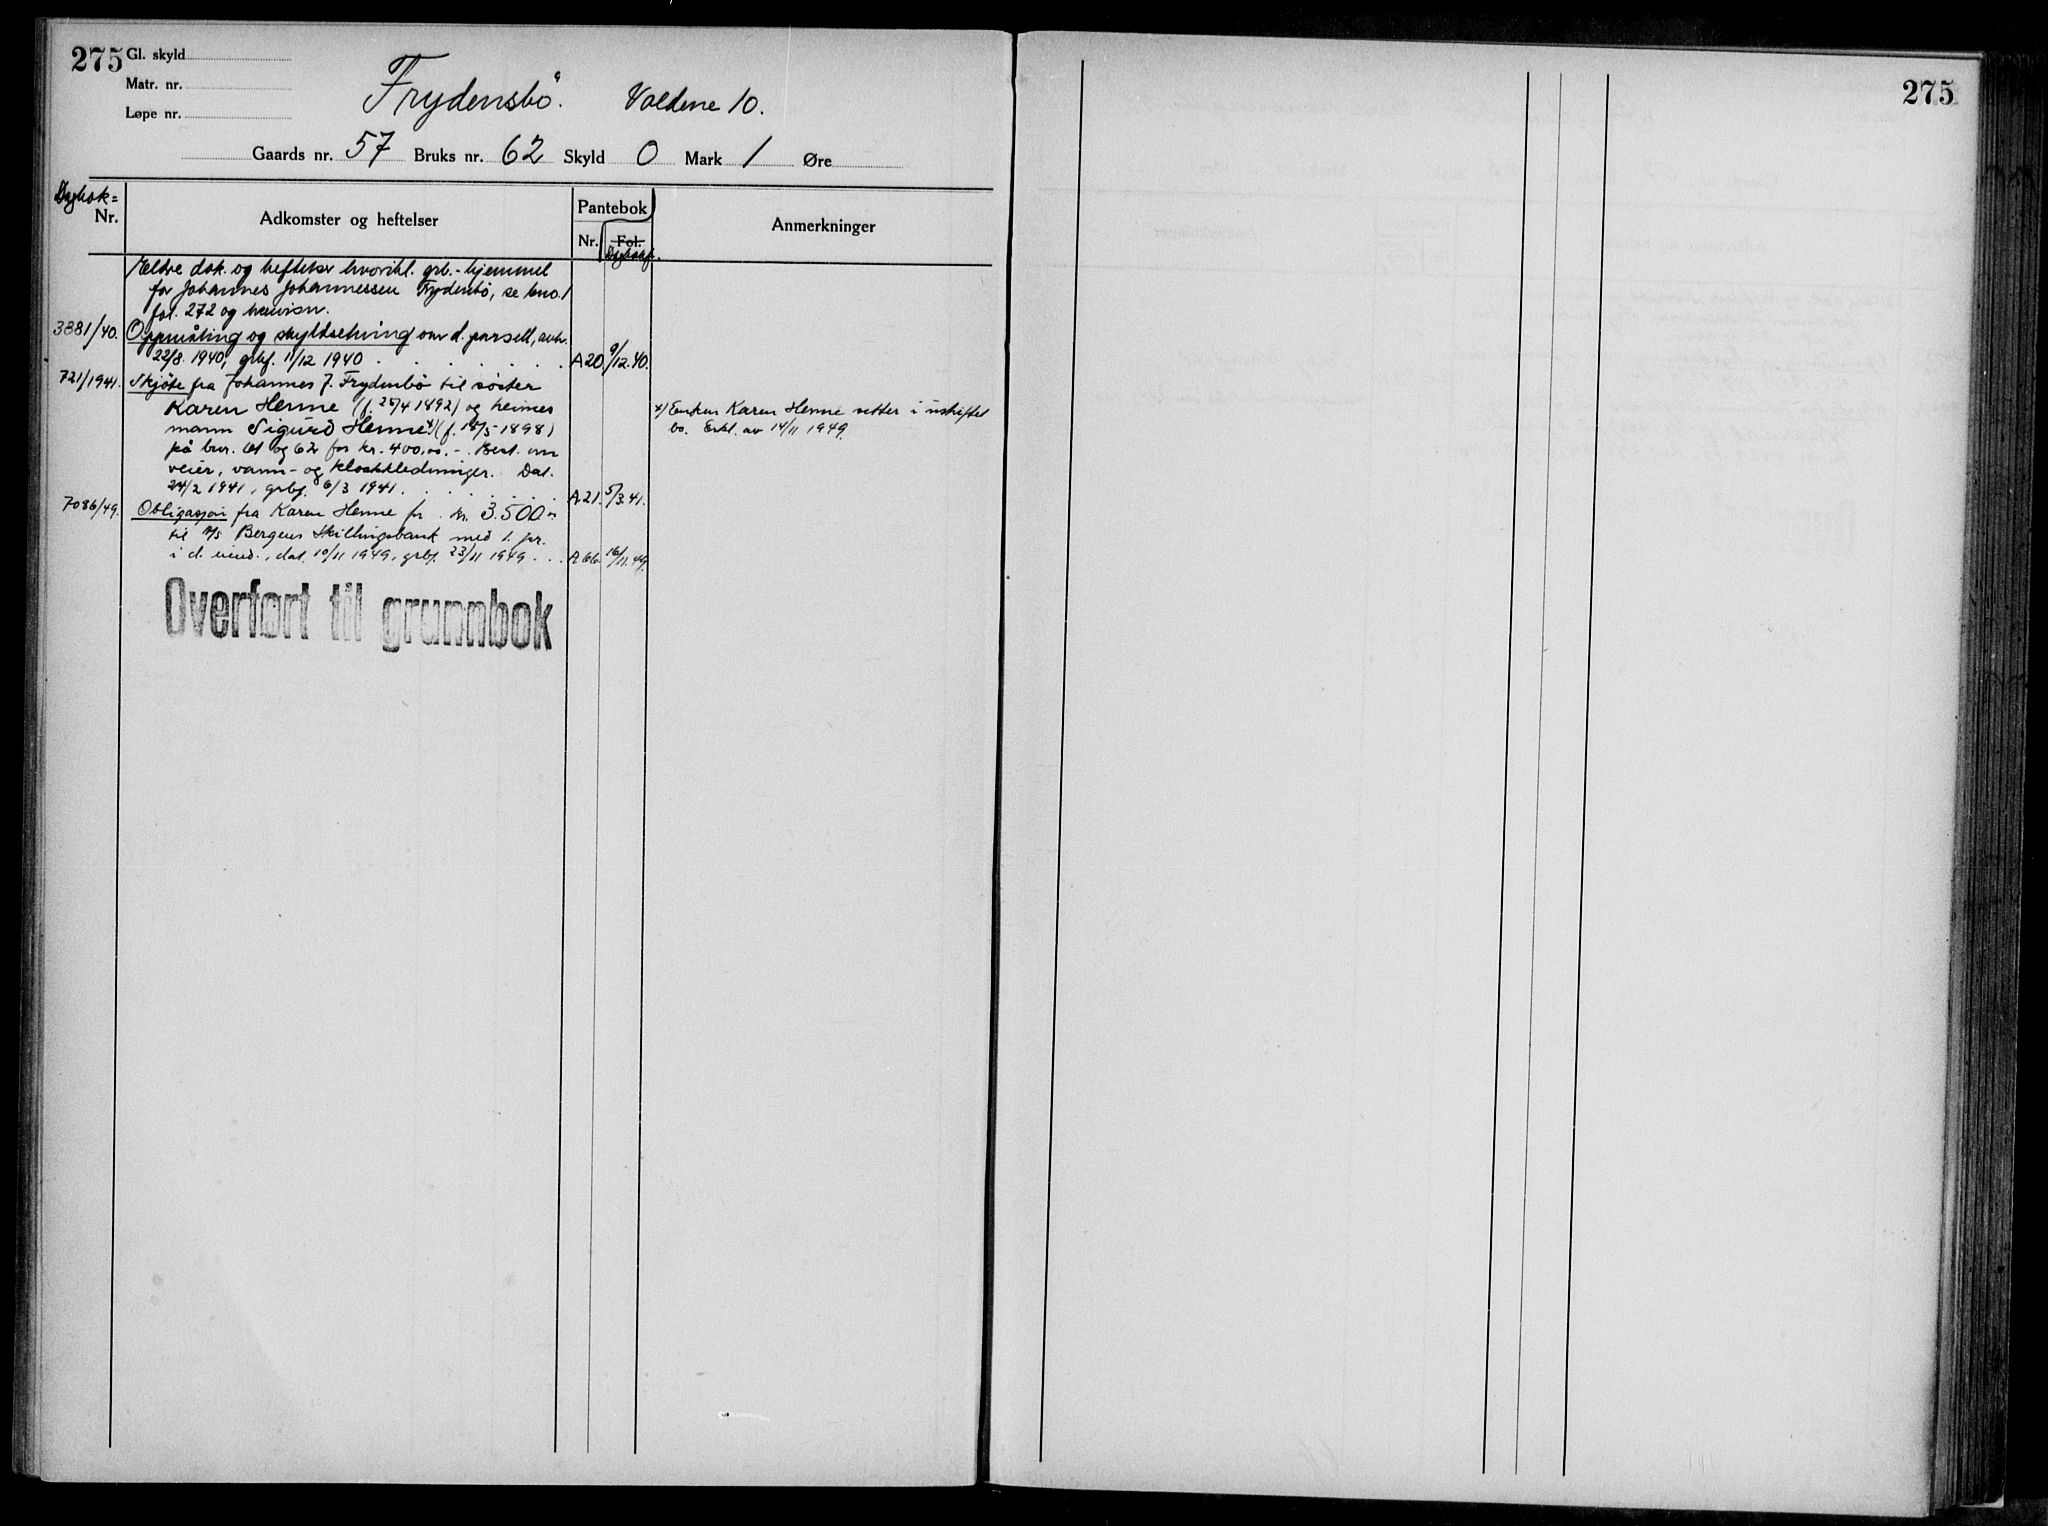 275
Gl. skyld
Matr. nr.
Løpe nr.
Frydensbö. Valdene 10.
Gaards nr. 57 Bruks nr. 62 Skyld 0 Mark 1 Øre
Dagbok=
Nr.
Adkomster og heftelser
Pantebok
Nr. Fol.
Dagbokf.
Anmerkninger
Eldre dok. og heftelser hvoribl. grb.-hjemmel
for Johannes Johannessen Frydenbö, se bno. 1
fol. 272 og henvisn.
3881/40. Oppmåling og skyldsetning over d. parsell, avh.
22/8 1940, grbf. 11/12 1940 . . . . . . A20 9/12.40.
721/1941. Skjöte fra Johannes J. Frydenbö til söster
Karen Henne (f. 25/4 1892) og hennes
mann Sigurd Henne x) (f. 18/5-1898)
på bnr. 61 og 62 for kr. 400,00.-. Best. om
veier, vann- og kloakkledninger. Dat.
24/2 1941, grbf. 6/3 1941. . . . . . A21. 5/3.41.
x) Enken Karen Henne sitter i uskiftet
bo. Erkl. av 14/11 1949.
7086/49. Obligasjon fra Karen Henne for kr. 3.500.-
til A/S Bergens Skillingsbank med 1. pr.
i d. eiend., dat. 10/11 1949, grbf. 23/11 1949 . . . A66 16/11.49.
Overført til grunnbok
275